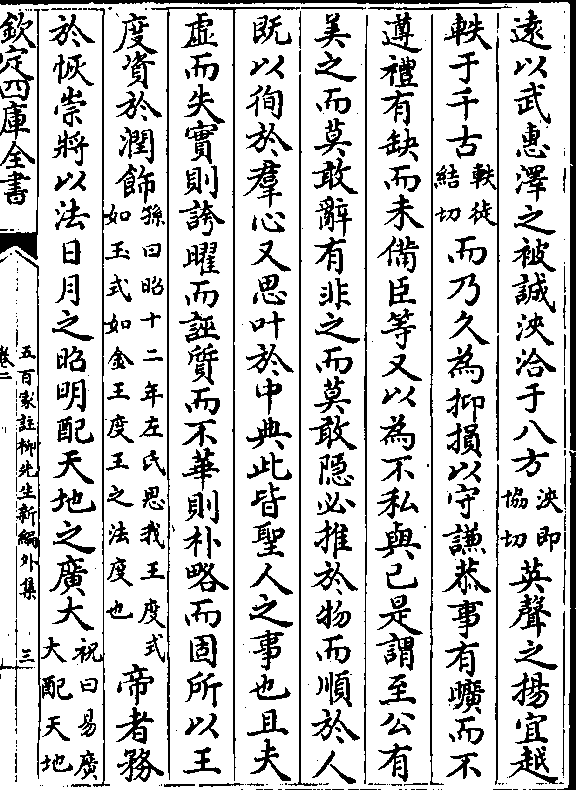 遠以武惠澤之被誠浹洽于八方浹即協切英聲之揚宜越
軼于千古軼徒結切而乃久為抑損以守謙恭事有曠而不
遵禮有缺而未備臣等又以為不私與已是謂至公有
美之而莫敢辭有非之而莫敢隠必推於物而順於人
既以徇於羣心又思叶於中典此皆聖人之事也且夫
虚而失實則誇曜而誣質而不華則朴略而固所以王
度資於潤飾孫曰昭十二年左氏思我王度式如玉式如金王度王之法度也帝者務
於恢崇將以法日月之昭明配天地之廣大祝曰易廣大配天地
欽定四庫全書
卷二
五百家註柳先生新編外集
三